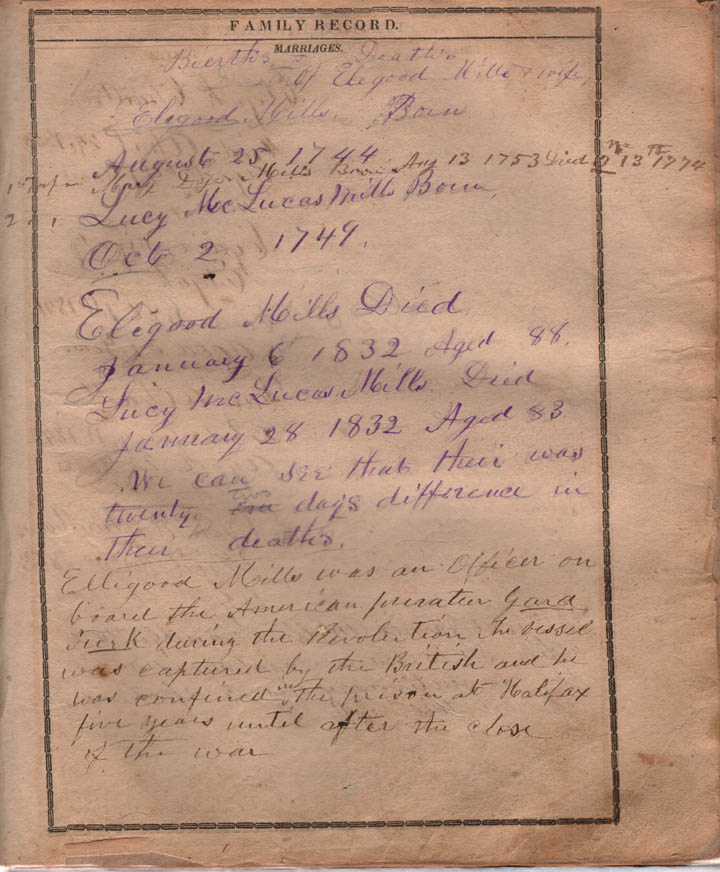 FAMILY RECORD.
MARRIAGES.
Bierths & Deaths
Of Elegood Mills & wife,
Elegood Mills Born
August 25 1744
1st wife Mary Dyer Mills Born Aug 13 1753 Died 13 1774
2
Lucy McLucas Mills Born
Oct 2 1749.
Elegood Mills Died
January 6 1832 Aged 88.
Lucy McLucas Mills. Died
January 28 1832 Aged 83
We can see that their was
twenty two days difference in
their deaths.
Elligood Mills was an Officer on
board the American privater
during the Revolution the vessel
was captured by the British and he
was confined in the prison at Halifax
five years until after the close
of the war